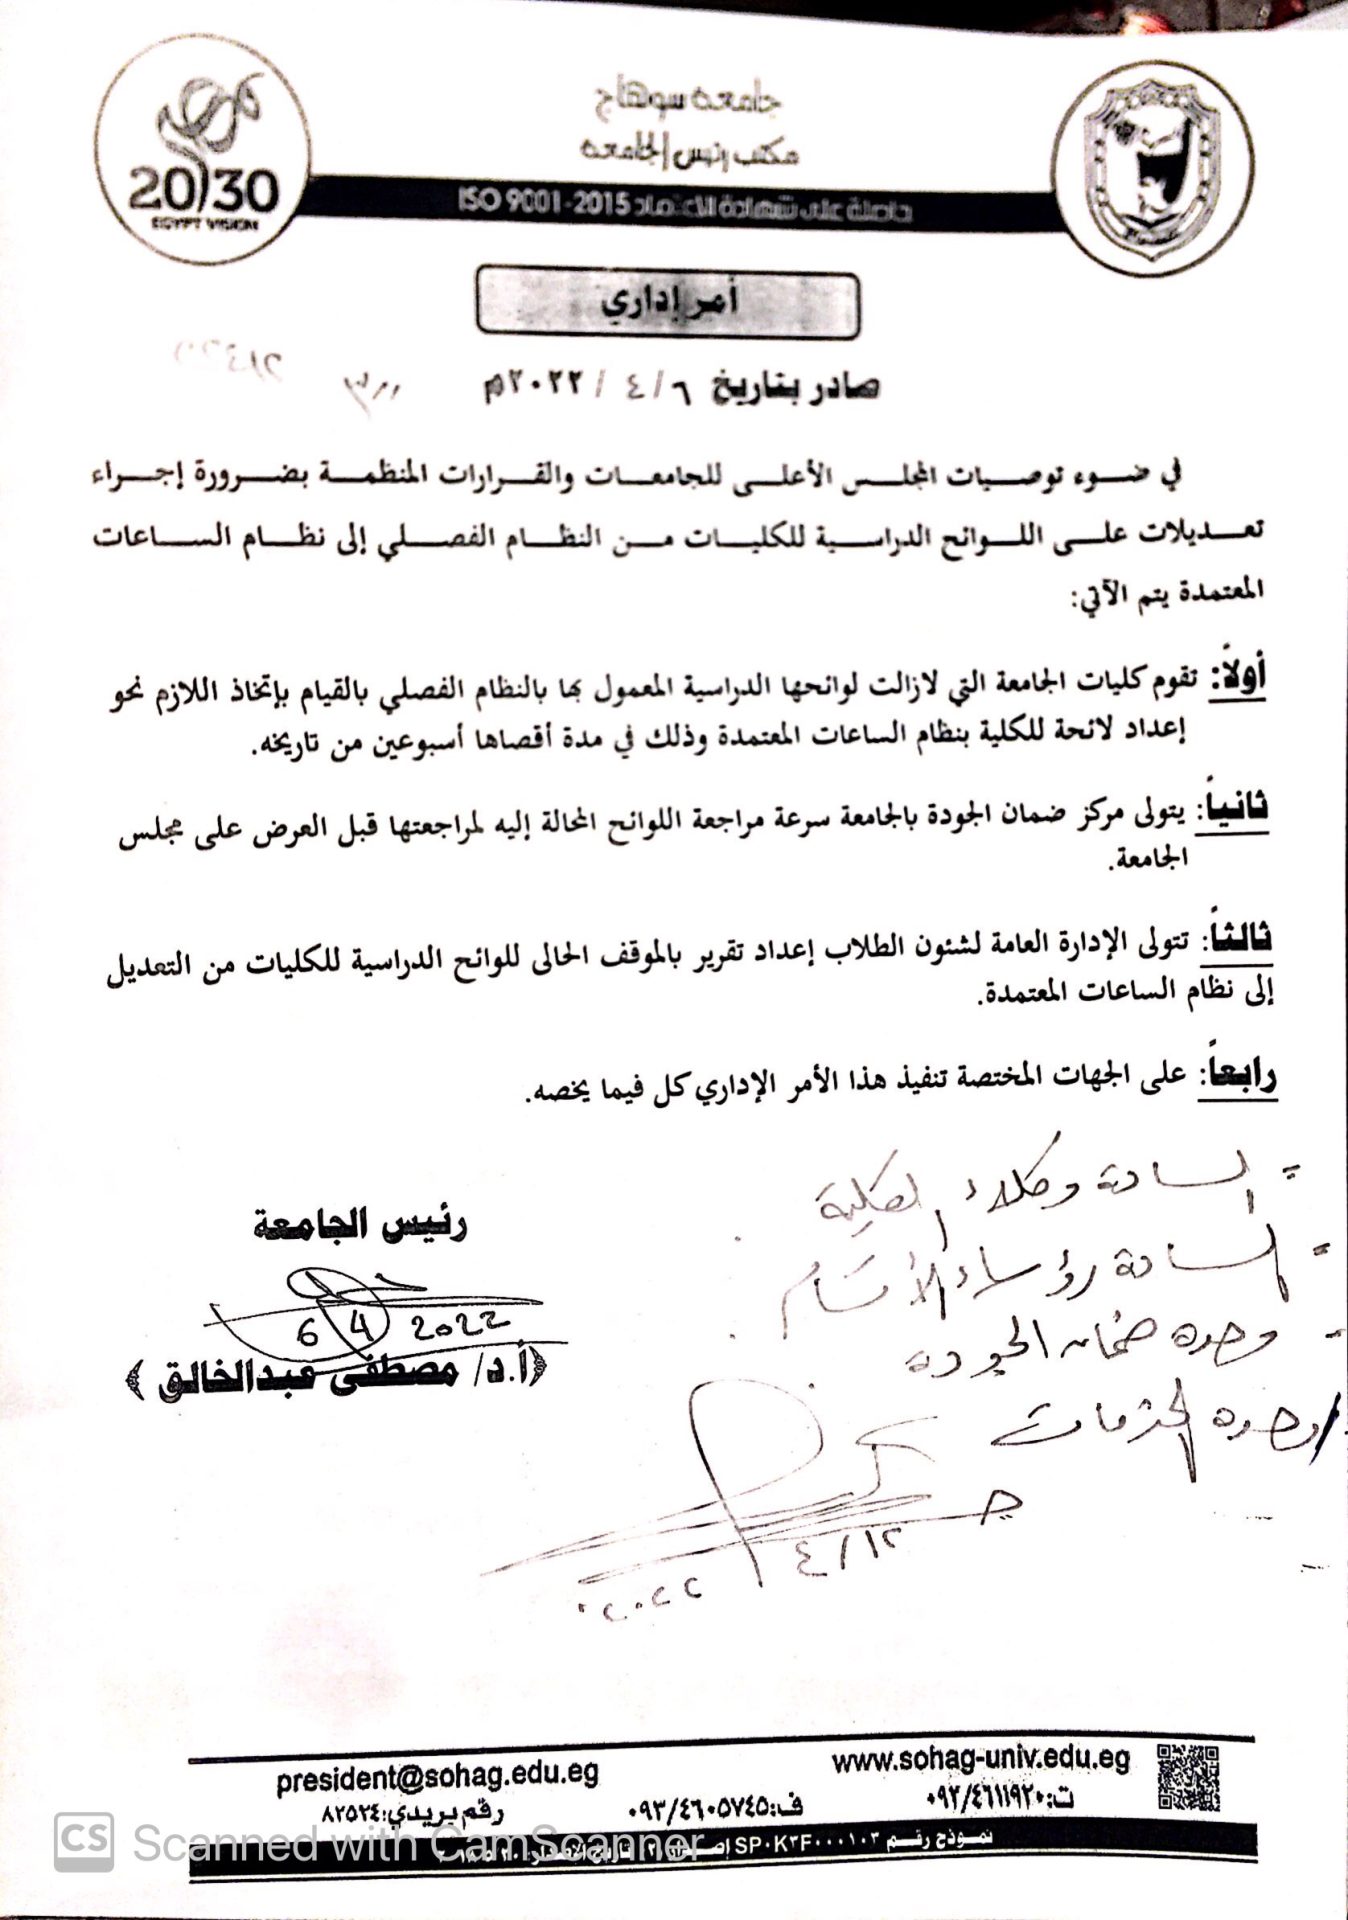 جامعة سوهاج
مكتب رئيس الجامعة
حاصلة على شهادة الاعتماد ISO 9001-2015
مصر
2030
EGYPT VISION
أمر إداري
صادر بتاريخ ٦ / ٤ / ٢٠٢٢م
في ضوء توصيات المجلس الأعلى للجامعات والقرارات المنظمة بضرورة إجراء
تعديلات على اللوائح الدراسية للكليات من النظام الفصلي إلى نظام الساعات
المعتمدة يتم الآتي:
أولاً: تقوم كليات الجامعة التي لازالت لوائحها الدراسية المعمول بها بالنظام الفصلي بالقيام بإتخاذ اللازم نحو
إعداد لائحة للكلية بنظام الساعات المعتمدة وذلك في مدة أقصاها أسبوعين من تاريخه.
ثانياً: يتولى مركز ضمان الجودة بالجامعة سرعة مراجعة اللوائح المحالة إليه لمراجعتها قبل العرض على مجلس
الجامعة.
ثالثاً: تتولى الإدارة العامة لشئون الطلاب إعداد تقرير بالموقف الحالى للوائح الدراسية للكليات من التعديل
إلى نظام الساعات المعتمدة.
رابعاً: على الجهات المختصة تنفيذ هذا الأمر الإداري كل فيما يخصه.
- السادة وكلاء الكلية
- السادة رؤساء الأقسام
- وحدة ضمان الجودة
وحدة الخدمات
١٢ / ٤
٢٠٢٢
رئيس الجامعة
6 4 2022
﴿أ.د/ مصطفى عبدالخالق﴾
www.sohag-univ.edu.eg
president@sohag.edu.eg
ت:٠٩٢/٤٦١١٩٢٠
ف:٠٩٣/٤٦٠٥٧٤٥
رقم بريدي:٨٢٥٢٤
نموذج رقم SP٠K٣F٠٠٠١٠٣
CS Scanned with CamScanner